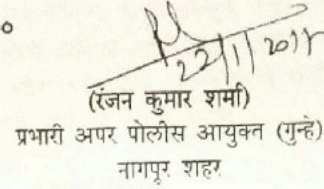 22/1/2018
(रंजन कुमार शर्मा)
प्रभारी अपर पोलीस आयुक्त (गुन्हे)
नागपूर शहर